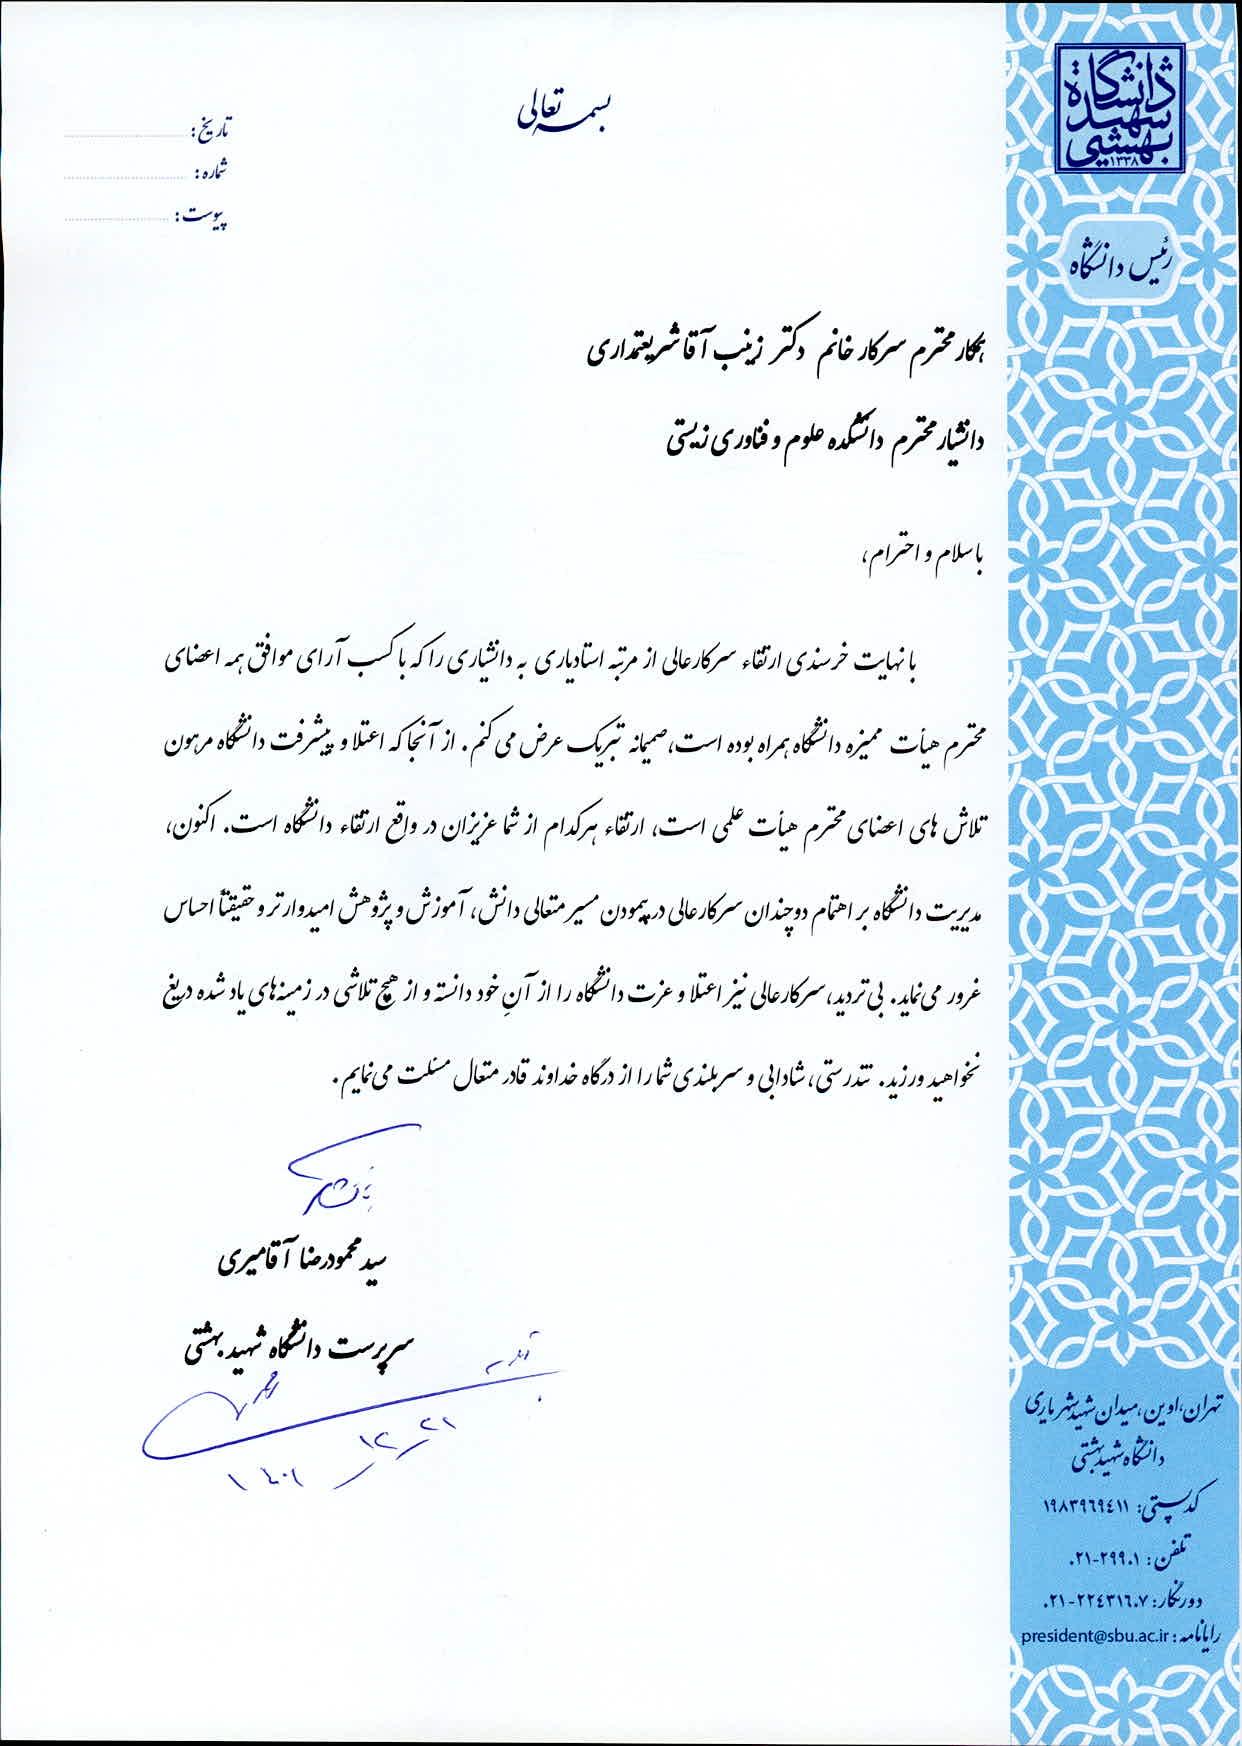 دانشگاه
شهید
بهشتی
۱۳۳۸
رئیس دانشگاه
بسمه تعالی
تاریخ:
شماره:
پیوست:
همکار محترم سرکار خانم دکتر زینب آقا شریعتمداری
دانشیار محترم دانشکده علوم و فناوری زیستی
با سلام و احترام،
با نهایت خرسندی ارتقاء سرکارعالی از مرتبه استادیاری به دانشیاری را که با کسب آرای موافق همه اعضای
محترم هیأت ممیزه دانشگاه همراه بوده است، صمیمانه تبریک عرض می کنم. از آنجا که اعتلا و پیشرفت دانشگاه مرهون
تلاش های اعضای محترم هیأت علمی است، ارتقاء هرکدام از شما عزیزان در واقع ارتقاء دانشگاه است. اکنون،
مدیریت دانشگاه بر اهتمام دوچندان سرکارعالی در پیمودن مسیر متعالی دانش، آموزش و پژوهش امیدوارتر و حقیقتاً احساس
غرور می‌نماید. بی تردید، سرکارعالی نیز اعتلا و عزت دانشگاه را از آنِ خود دانسته و از هیچ تلاشی در زمینه‌های یاد شده دریغ
نخواهید ورزید. تندرستی، شادابی و سربلندی شما را از درگاه خداوند قادر متعال مسئلت می‌نمایم.
سید محمودرضا آقامیری
سرپرست دانشگاه شهید بهشتی
۱۴۰۱/۱۲/۲۱
تهران، اوین، میدان شهید شهریاری
دانشگاه شهید بهشتی
کدپستی: ۱۹۸۳۹۶۹٤۱۱
تلفن: ۰۲۱-۲۹۹۰۱
دورنگار: ۰۲۱-۲۲٤۳۱٦۰۷
رایانامه: president@sbu.ac.ir